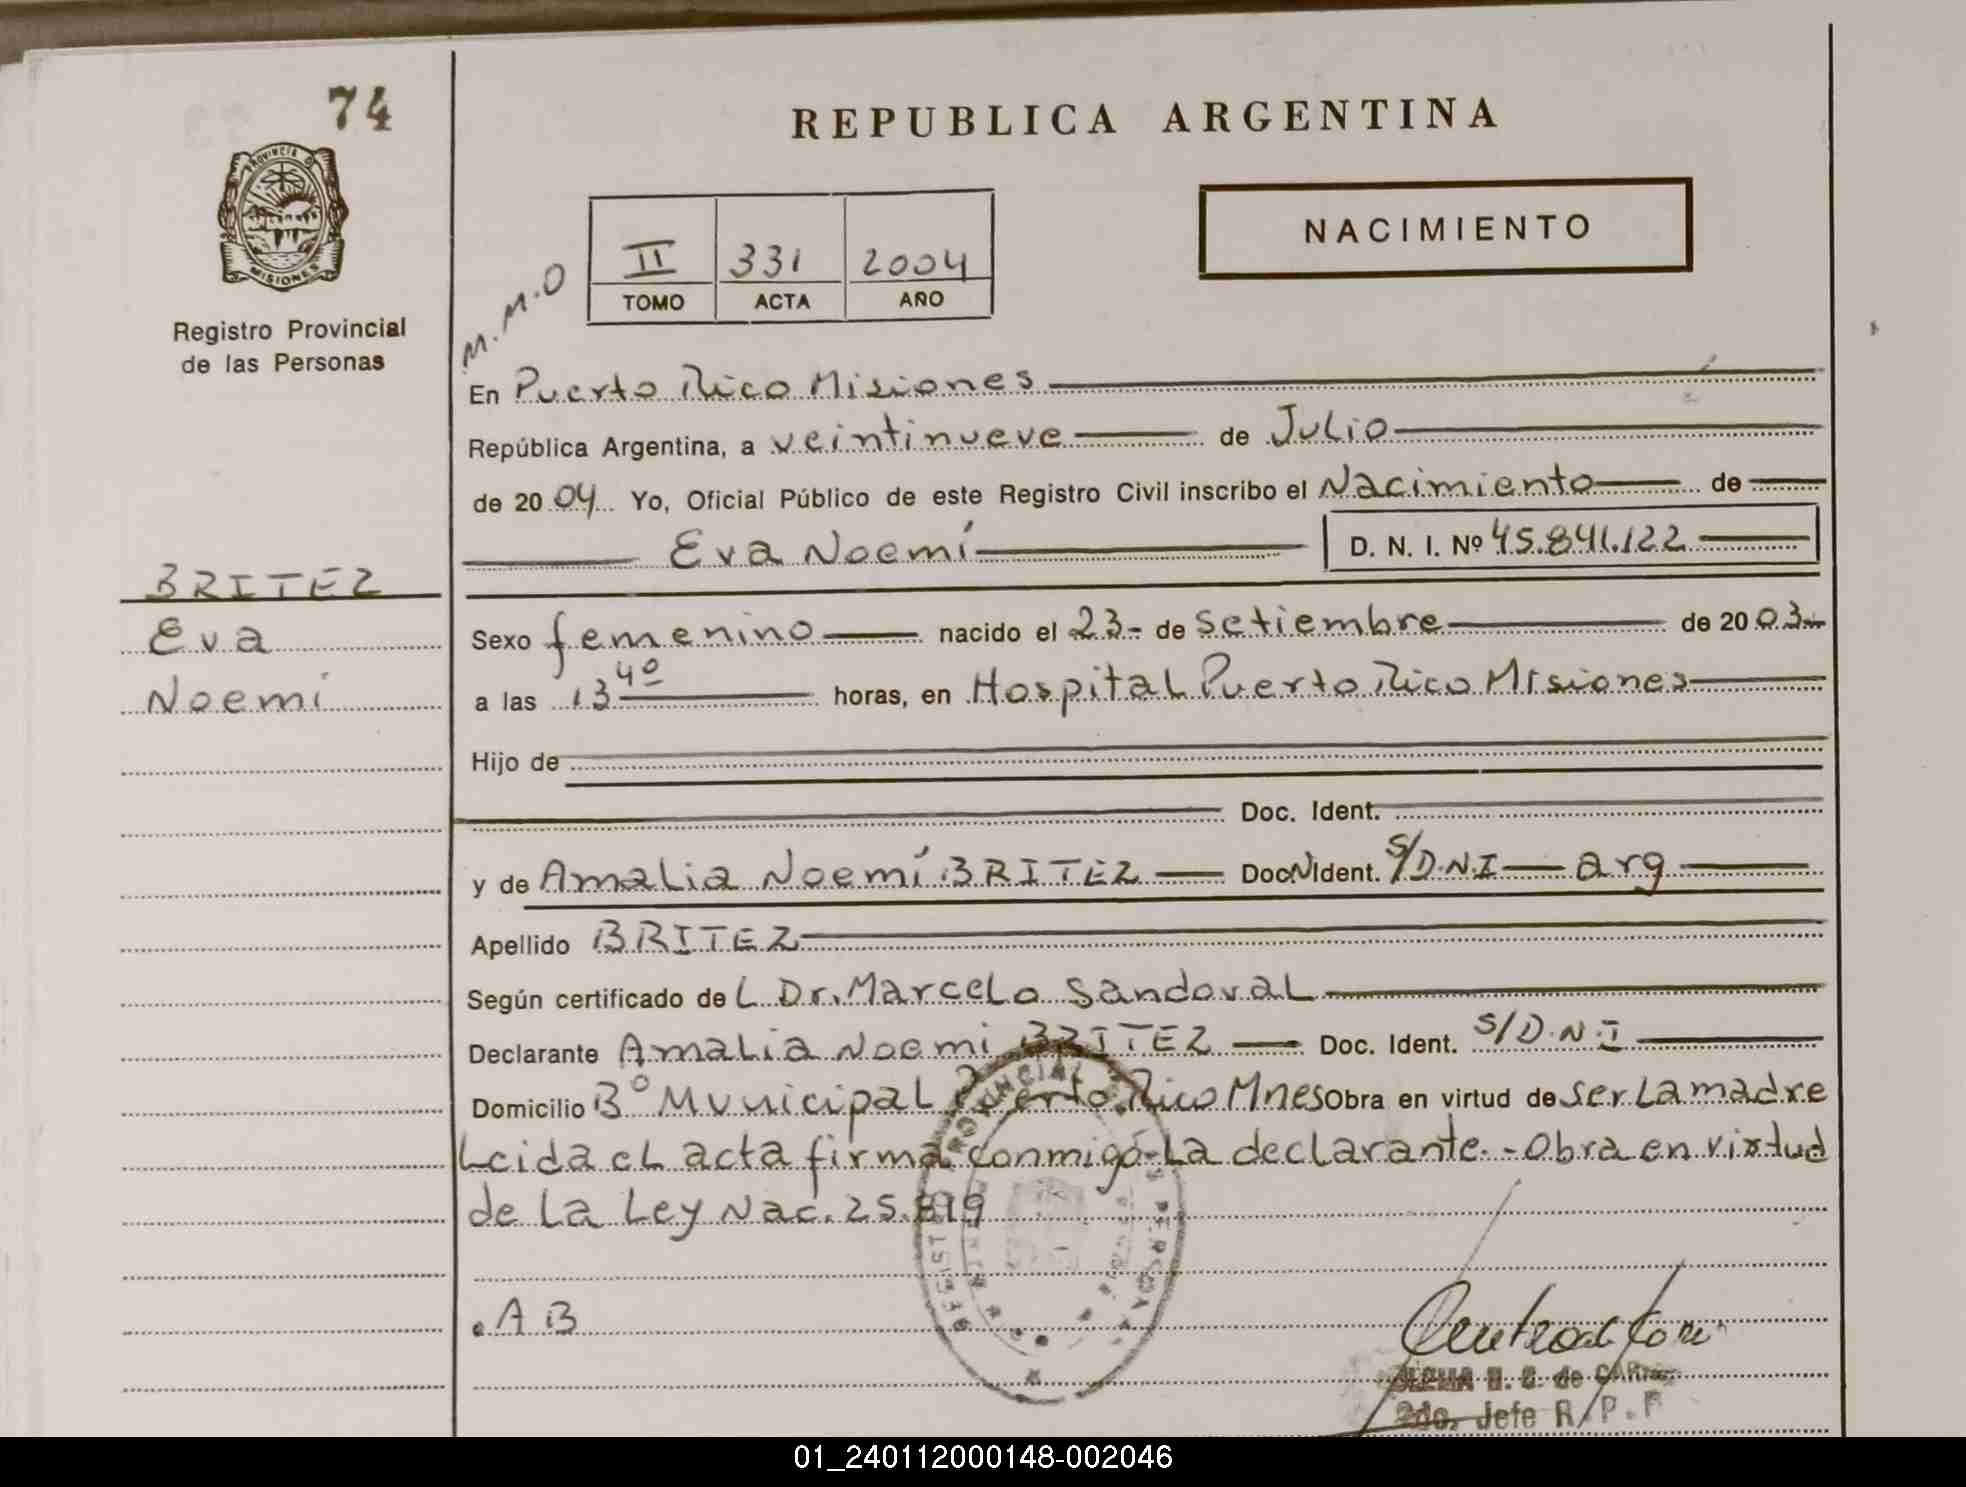 74
PROVINCIA D
MISIONES
Registro Provincial
de las Personas
REPUBLICA ARGENTINA
NACIMIENTO
II 331 2004
TOMO ACTA AÑO
M.M.O
En Puerto Rico Misiones
República Argentina, a veintinueve de Julio
de 2004 Yo, Oficial Público de este Registro Civil inscribo el Nacimiento de
Eva Noemí D. N. I. Nº 45.841.122
BRITEZ
Eva
Noemí
Sexo femenino nacido el 23- de Setiembre de 2003-
a las 13 40 horas, en Hospital Puerto Rico Misiones
Hijo de
Doc. Ident.
y de Amalia Noemí BRITEZ Doc. Ident. S/D.N.I arg
Apellido BRITEZ
Según certificado de L Dr. Marcelo Sandoval
Declarante Amalia Noemi BRITEZ Doc. Ident. S/D.N.I
Domicilio Bº Municipal Puerto Rico Mnes Obra en virtud de ser La madre
Leida el acta firma conmigo La declarante.- Obra en virtud
de la Ley Nac. 25.819
.AB
de
2do. Jefe R.P.P
01_240112000148-002046